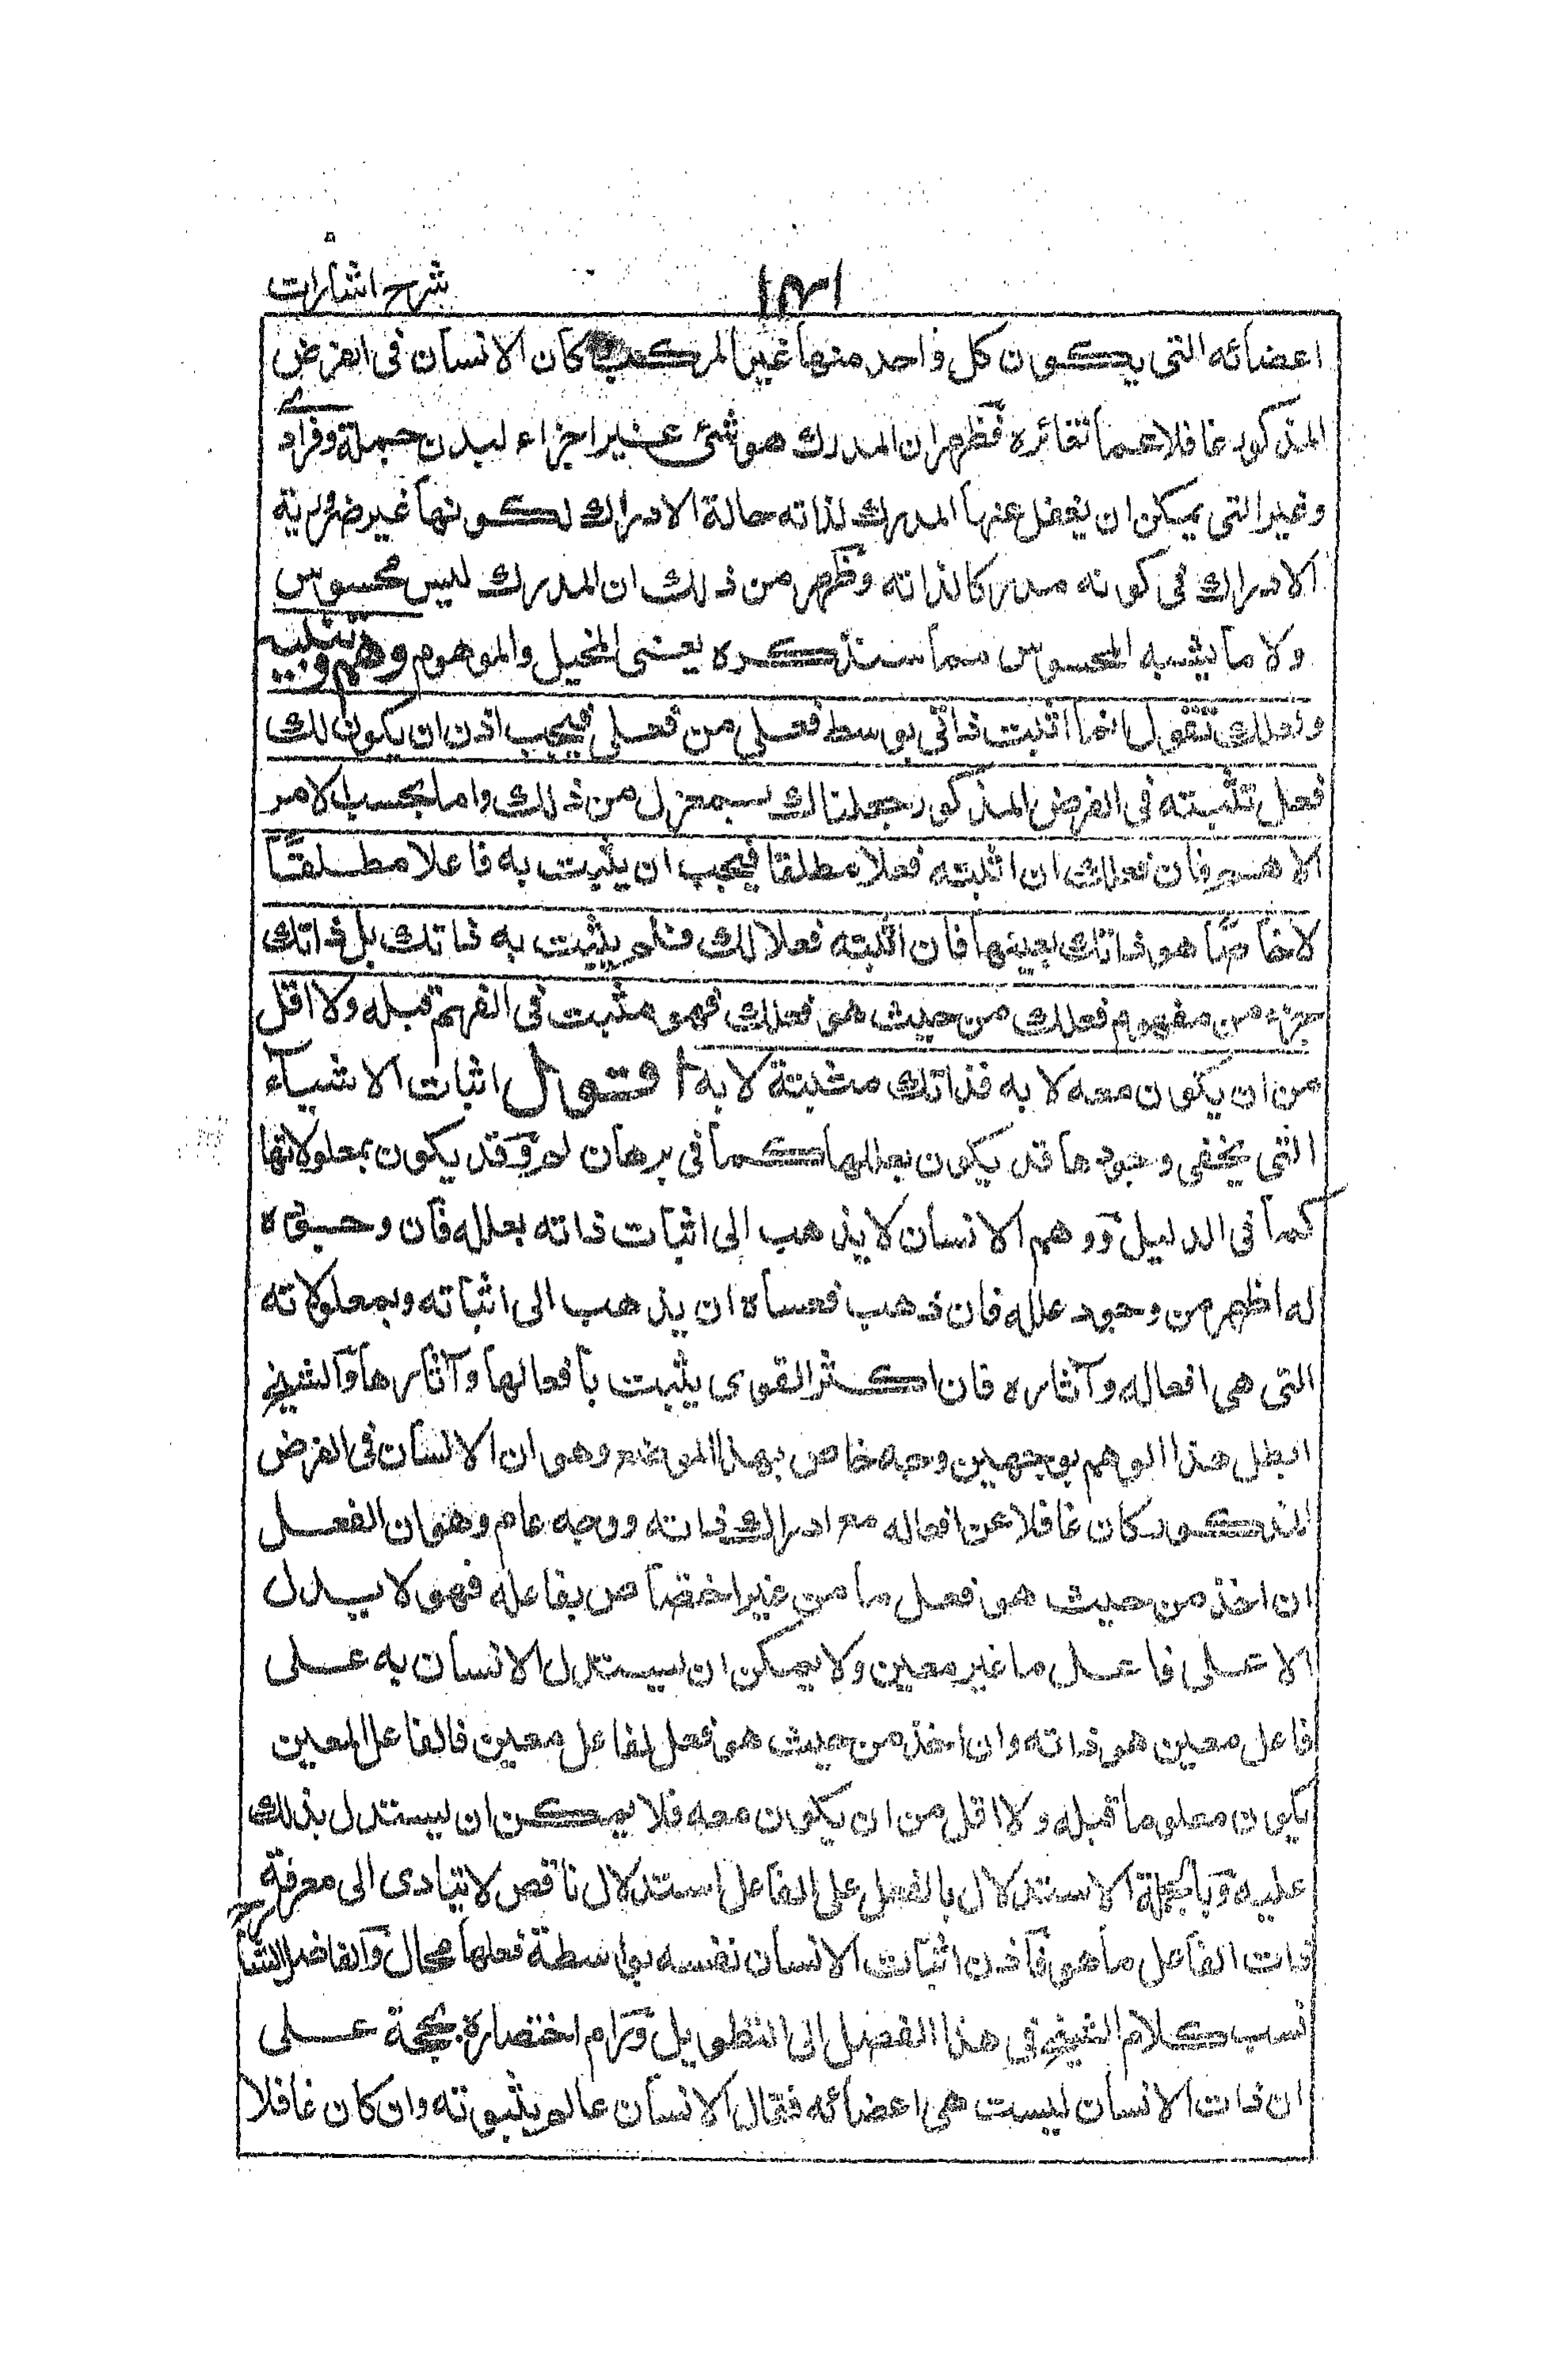 ١٣١
شرح اشارات
اعضائه التى يكون كل واحد منها غير المركب كان الانسان فى الفرض
المذكور غافلا عما تغائره فظهر ان المدرك هو شئ غير اجزاء لبدن جملة وفرادى
وغير التى يمكن ان يغفل عنها المدرك لذاته حالة الادراك لكونها غير ضرورية
الادراك فى كونه مدركا لذاته وظهر من ذلك ان المدرك ليس محسوس
ولا ما يشبه المحسوس مما سنذكره يعنى المخيل والموهوم وهم وتنبيه
ولعلك تقول انما اثبت ذاتى بوسط فعلى من فعلى فيجب اذن ان يكون لك
فعل تثبته فى الفرض المذكور جعلناك بمعزل من ذلك واما بحسب الامر
الاعم فان فعلك ان اثبته فعلا مطلقا فيجب ان يثبت به فاعلا مطلقا
لا خاصا هو ذاتك بعينها فان اثبته فعلا لك فلم يثبت به ذاتك بل ذاتك
جزء من مفهوم فعلك من حيث هو فعلك فهو مثبت فى الفهم قبله ولا اقل
من ان يكون معه لا به فذاتك مثبتة لا به اقول اثبات الاشياء
التى يخفى وجودها قد يكون بعللها كما فى برهان لم وقد يكون بمعلولاتها
كما فى الدليل ووهم الانسان لا يذهب الى اثبات ذاته بعلله فان وجوده
له اظهر من وجود علله فان ذهب فعساه ان يذهب الى اثباته وبمعلولاته
التى هى افعاله وآثاره فان اكثر القوى يثبت بأفعالها وآثارها والشيخ
ابطل هذا الوهم بوجهين وجه خاص بهذا الموضع وهو ان الانسان فى الفرض
المذكور كان غافلا عن افعاله مع ادراك ذاته ووجه عام وهو ان الفعل
ان اخذ من حيث هو فعل ما من غير اختصاص بفاعله فهو لا يدل
الا على فاعل ما غير معين ولا يمكن ان يستدل الانسان به على
فاعل معين هو ذاته وان اخذ من حيث هو فعل لفاعل معين فالفاعل المعين
يكون معلوما قبله ولا اقل من ان يكون معه فلا يمكن ان يستدل بذلك
عليه وبالجملة الاستدلال بالفعل على الفاعل استدلال ناقص لا يتادى الى معرفة
ذات الفاعل ما هو فاذن اثبات الانسان نفسه بواسطة فعلها محال والفاضل الشارح
نسب كلام الشيخ فى هذا الفصل الى التطويل ورام اختصاره بحجة على
ان ذات الانسان ليست هى اعضائه فقال الانسان عالم بثبوته وان كان غافلا